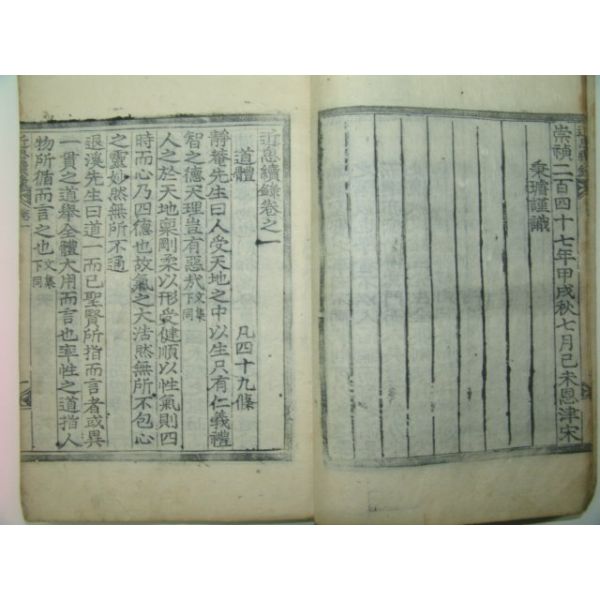 崇禎二百四十七年甲戌秋七月己未恩津宋
秉璿謹識
近思續錄卷之一
道體 凡四十九條
靜菴先生曰人受天地之中以生只有仁義禮
智之德天理豈有惡哉文集下同
人之於天地稟剛柔以形受健順以性氣則四
時而心乃四德也故氣之大浩然無所不包心
之靈妙然無所不通
退溪先生曰道一而已聖賢所指而言者或異
一貫之道舉全體大用而言也率性之道指人
物所循而言之也文集下同